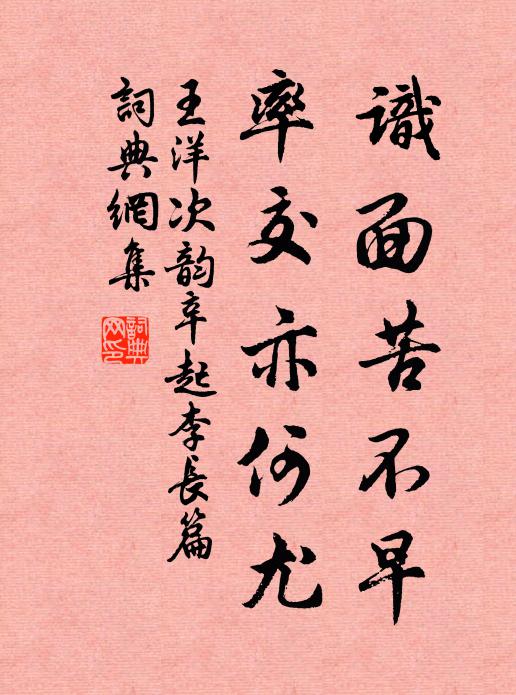 識面苦不早
率交亦何尤
王洋次韵辛起李長篇
詞典網集
詞典
网印